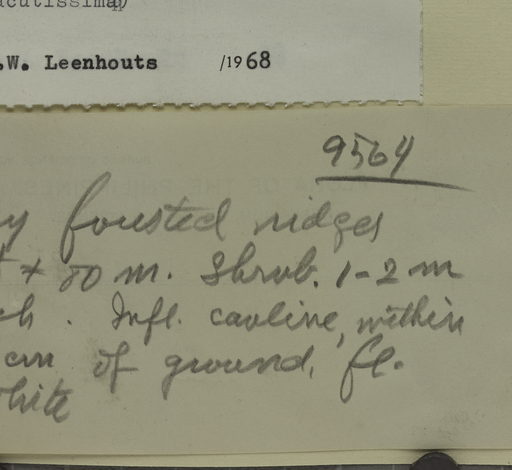 acutissima)
.W. Leenhouts /1968
9564
y forested ridges
± 50 m. Shrub. 1-2 m
h. Infl. cauline, within
cm of ground, fl.
white